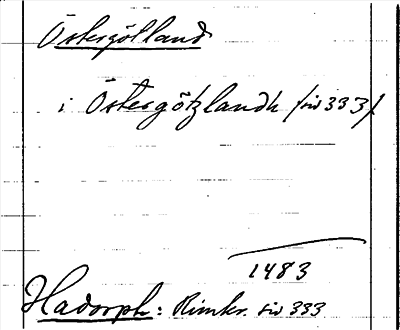 Östergötland
i Östergötzlandh /sid 333/.
1483
Hadorph: Rimkr. sid 333